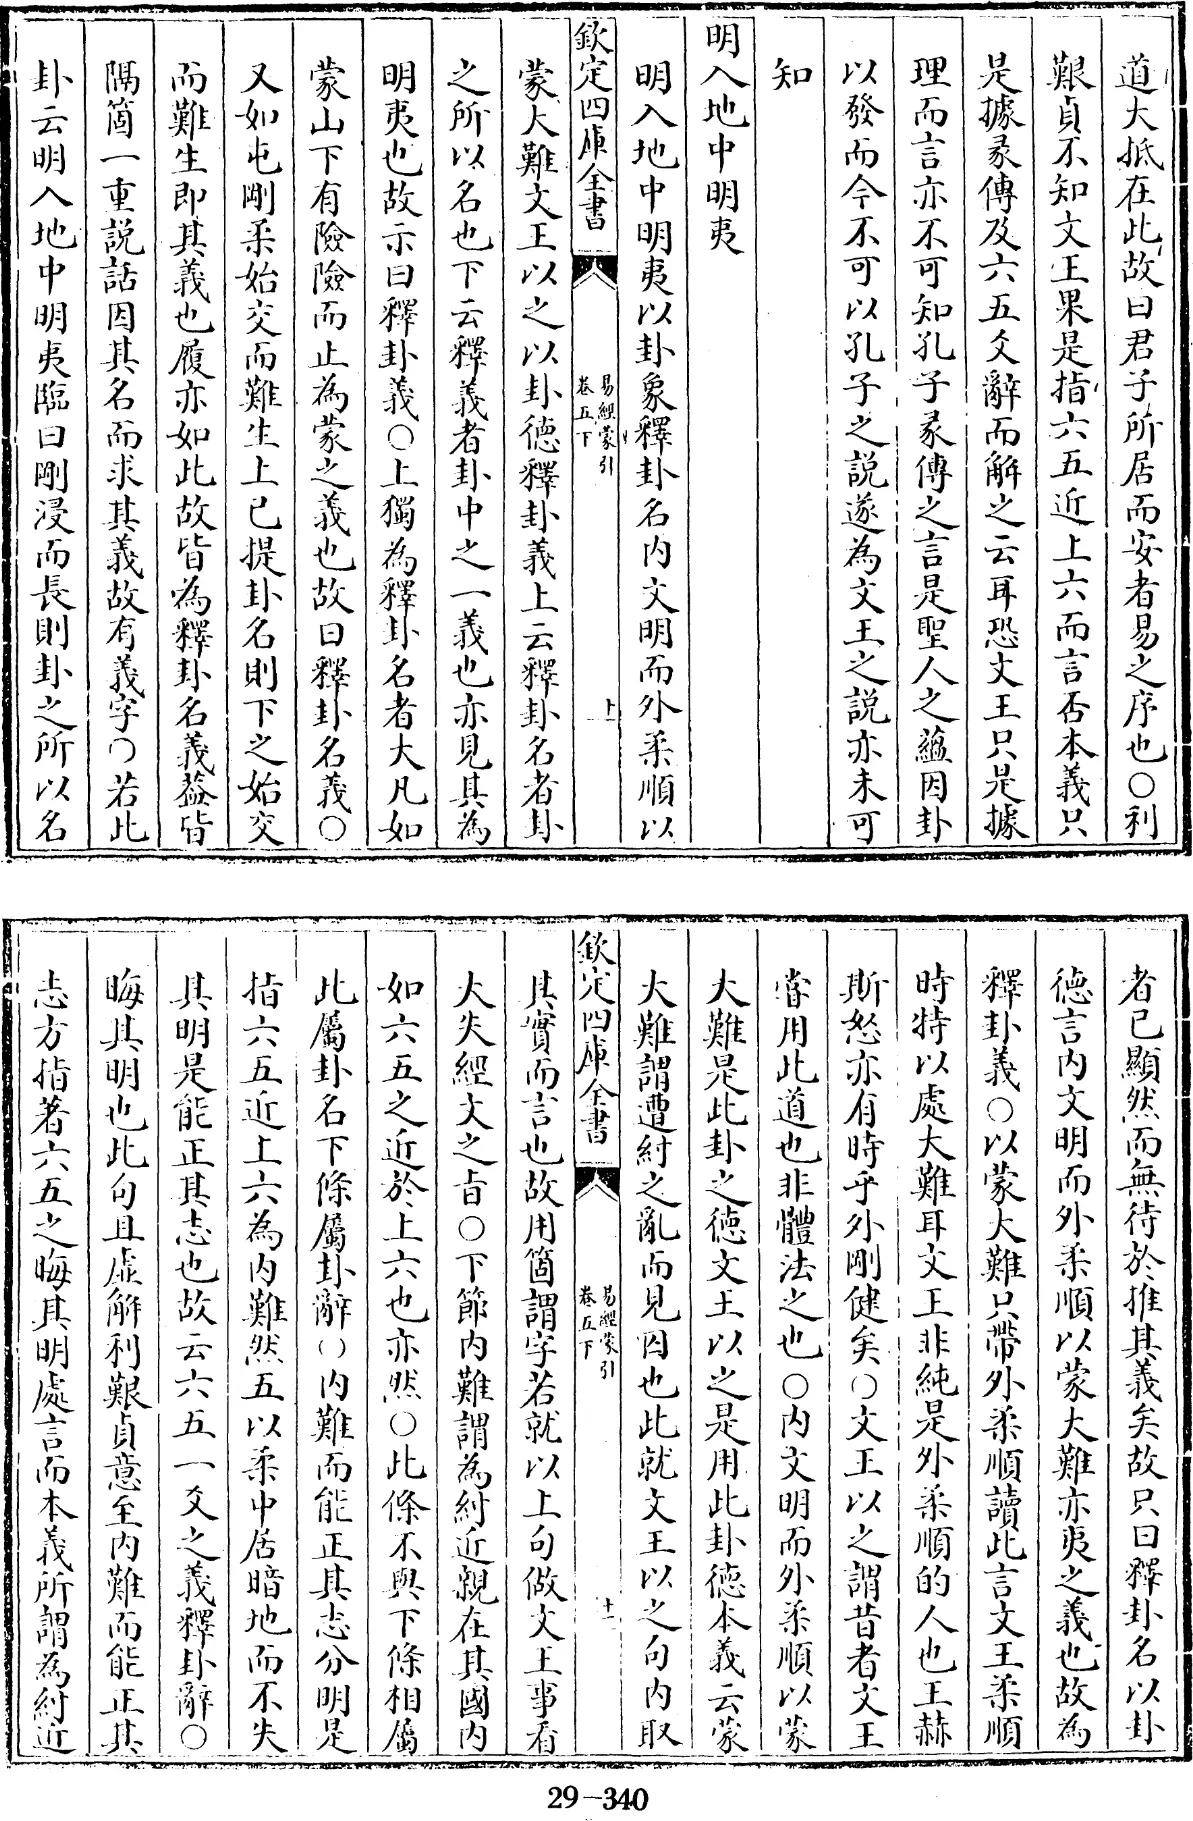 道大抵在此故曰君子所居而安者易之序也○利
艱貞不知文王果是指六五近上六而言否本義只
是據彖傳及六五爻辭而解之云耳恐文王只是據
理而言亦不可知孔子彖傳之言是聖人之蘊因卦
以發而今不可以孔子之説遂為文王之説亦未可
知
明入地中明夷
明入地中明夷以卦象釋卦名内文明而外柔順以
欽定四庫全書
易經蒙引
卷五下
十一
蒙大難文王以之以卦德釋卦義上云釋卦名者卦
之所以名也下云釋義者卦中之一義也亦見其為
明夷也故示曰釋卦義○上獨為釋卦名者大凡如
蒙山下有險險而止為蒙之義也故曰釋卦名義○
又如屯剛柔始交而難生上已提卦名則下之始交
而難生即其義也履亦如此故皆為釋卦名義益皆
隔箇一重説話因其名而求其義故有義字○若此
卦云明入地中明夷臨曰剛浸而長則卦之所以名
者已顯然而無待於推其義矣故只曰釋卦名以卦
德言内文明而外柔順以蒙大難亦夷之義也故為
釋卦義○以蒙大難只帶外柔順讀此言文王柔順
時特以處大難耳文王非純是外柔順的人也王赫
斯怒亦有時乎外剛健矣○文王以之謂昔者文王
嘗用此道也非體法之也○内文明而外柔順以蒙
大難是此卦之德文王以之是用此卦德本義云蒙
大難謂遭紂之亂而見囚也此就文王以之句内取
欽定四庫全書
易經蒙引
卷五下
十二
其實而言也故用箇謂字若就以上句做文王事看
大失經文之旨○下節内難謂為紂近親在其國内
如六五之近於上六也亦然○此條不與下條相屬
此屬卦名下條屬卦辭○内難而能正其志分明是
指六五近上六為内難然五以柔中居暗地而不失
其明是能正其志也故云六五一爻之義釋卦辭○
晦其明也此句且虛解利艱貞意至内難而能正其
志方指著六五之晦其明處言而本義所謂為紂近
29-340